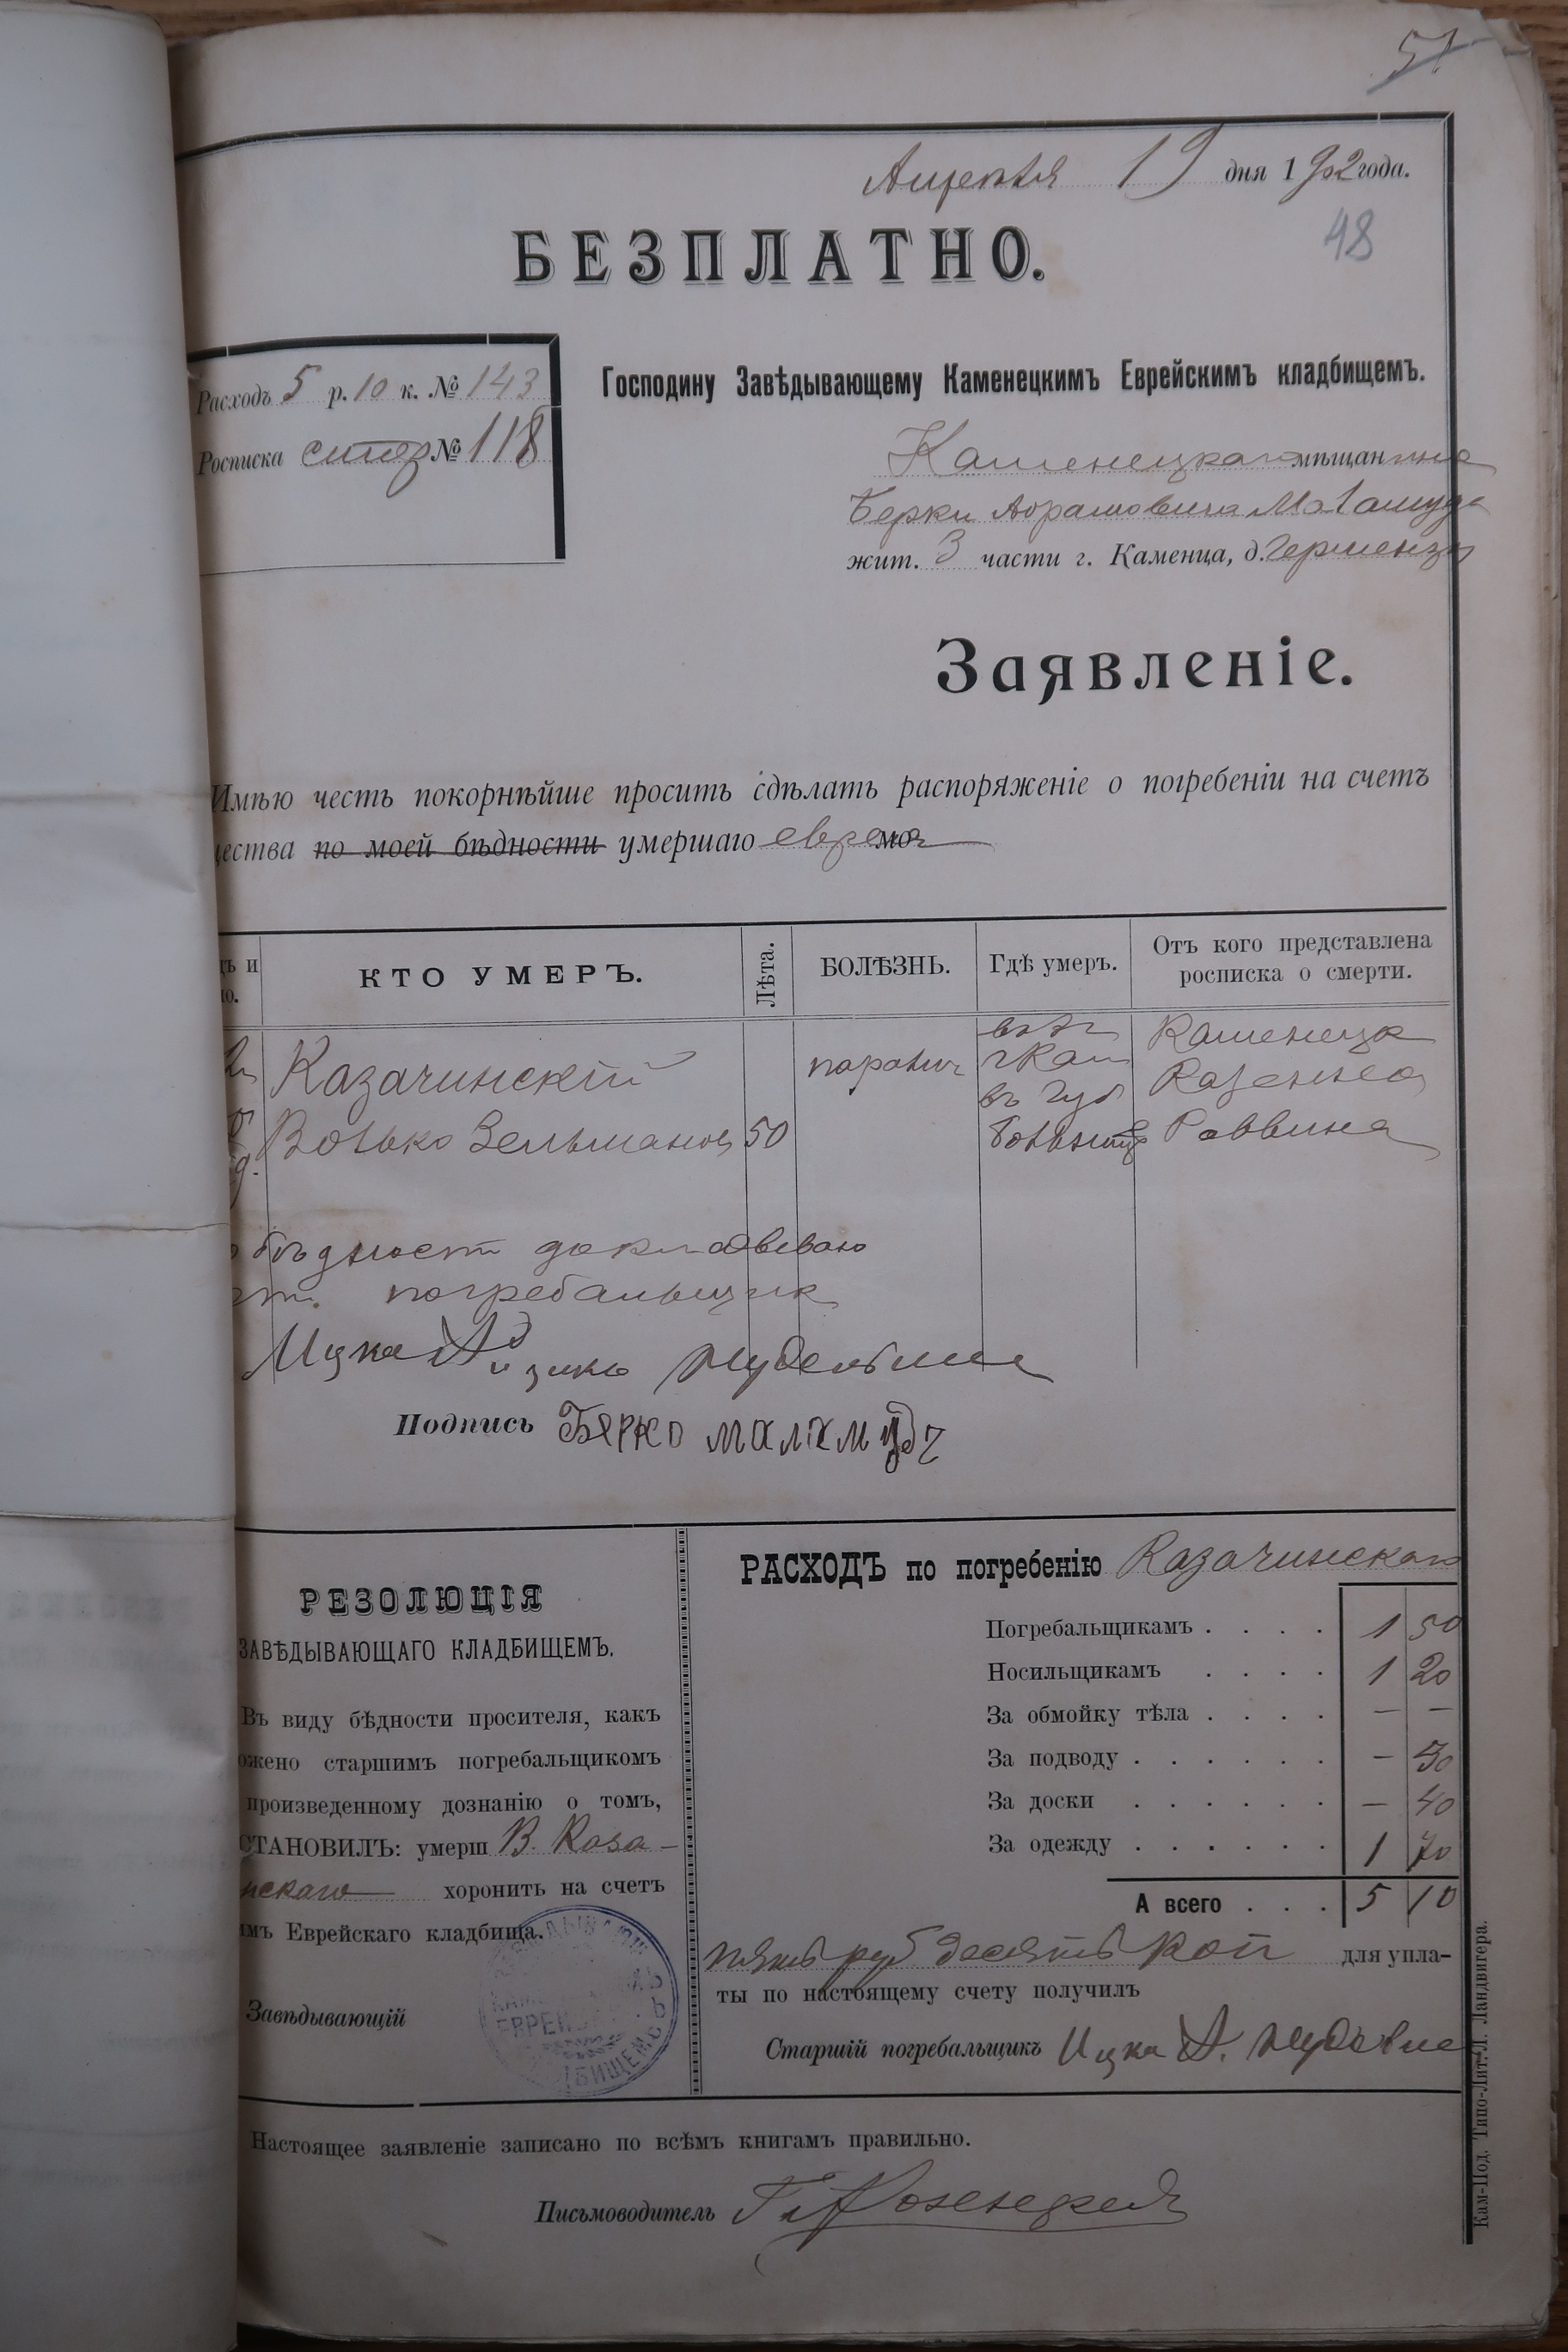 51
Апреля 19 дня 1902 года.
БЕЗПЛАТНО.
48
Расходъ 5 р. 10 к. № 143
Росписка № 118
Господину Завѣдывающему Каменецкимъ Еврейскимъ кладбищемъ.
Каменецкаго мѣщанина
Берки Абрамовича Маламуда
жит. 3 части г. Каменца, д.
Заявленіе.
Имѣю честь покорнѣйше просить сдѣлать распоряженіе о погребеніи на счетъ
щества по моей бѣдности умершаго еврея мо
ъ и
о.
КТО УМЕРЪ.
Лѣта.
БОЛѢЗНЬ.
Гдѣ умеръ.
Отъ кого представлена
росписка о смерти.
Казачинскій
Волько Зельманов
50
паралич
в гор
г Кам
въ Губ
больниц
Каменецк
Казеннаго
Раввина
бѣдност докладываю
ст. погребальщик
Ицка Айзикъ Нудельман
Подпись Бярко маламудъ
РЕЗОЛЮЦІЯ
ЗАВѢДЫВАЮЩАГО КЛАДБИЩЕМЪ.
Въ виду бѣдности просителя, какъ
ожено старшимъ погребальщикомъ
произведенному дознанію о томъ,
СТАНОВИЛЪ: умерш В. Каза-
нскаго хоронить на счетъ
имъ Еврейскаго кладбища.
Завѣдывающій
РАСХОДЪ по погребенію Казачинскаго
Погребальщикамъ . . . . 1 50
Носильщикамъ . . . . 1 20
За обмойку тѣла . . . . — —
За подводу . . . . . . — 30
За доски . . . . . . — 40
За одежду . . . . . . 1 70
А всего . . . 5 10
пять руб десять коп для упла-
ты по настоящему счету получилъ
Старшій погребальщикъ Ицка А. Нудельман
Настоящее заявленіе записано по всѣмъ книгамъ правильно.
Письмоводитель
Кам-Под. Типо-Лит. Л. Ландвигера.